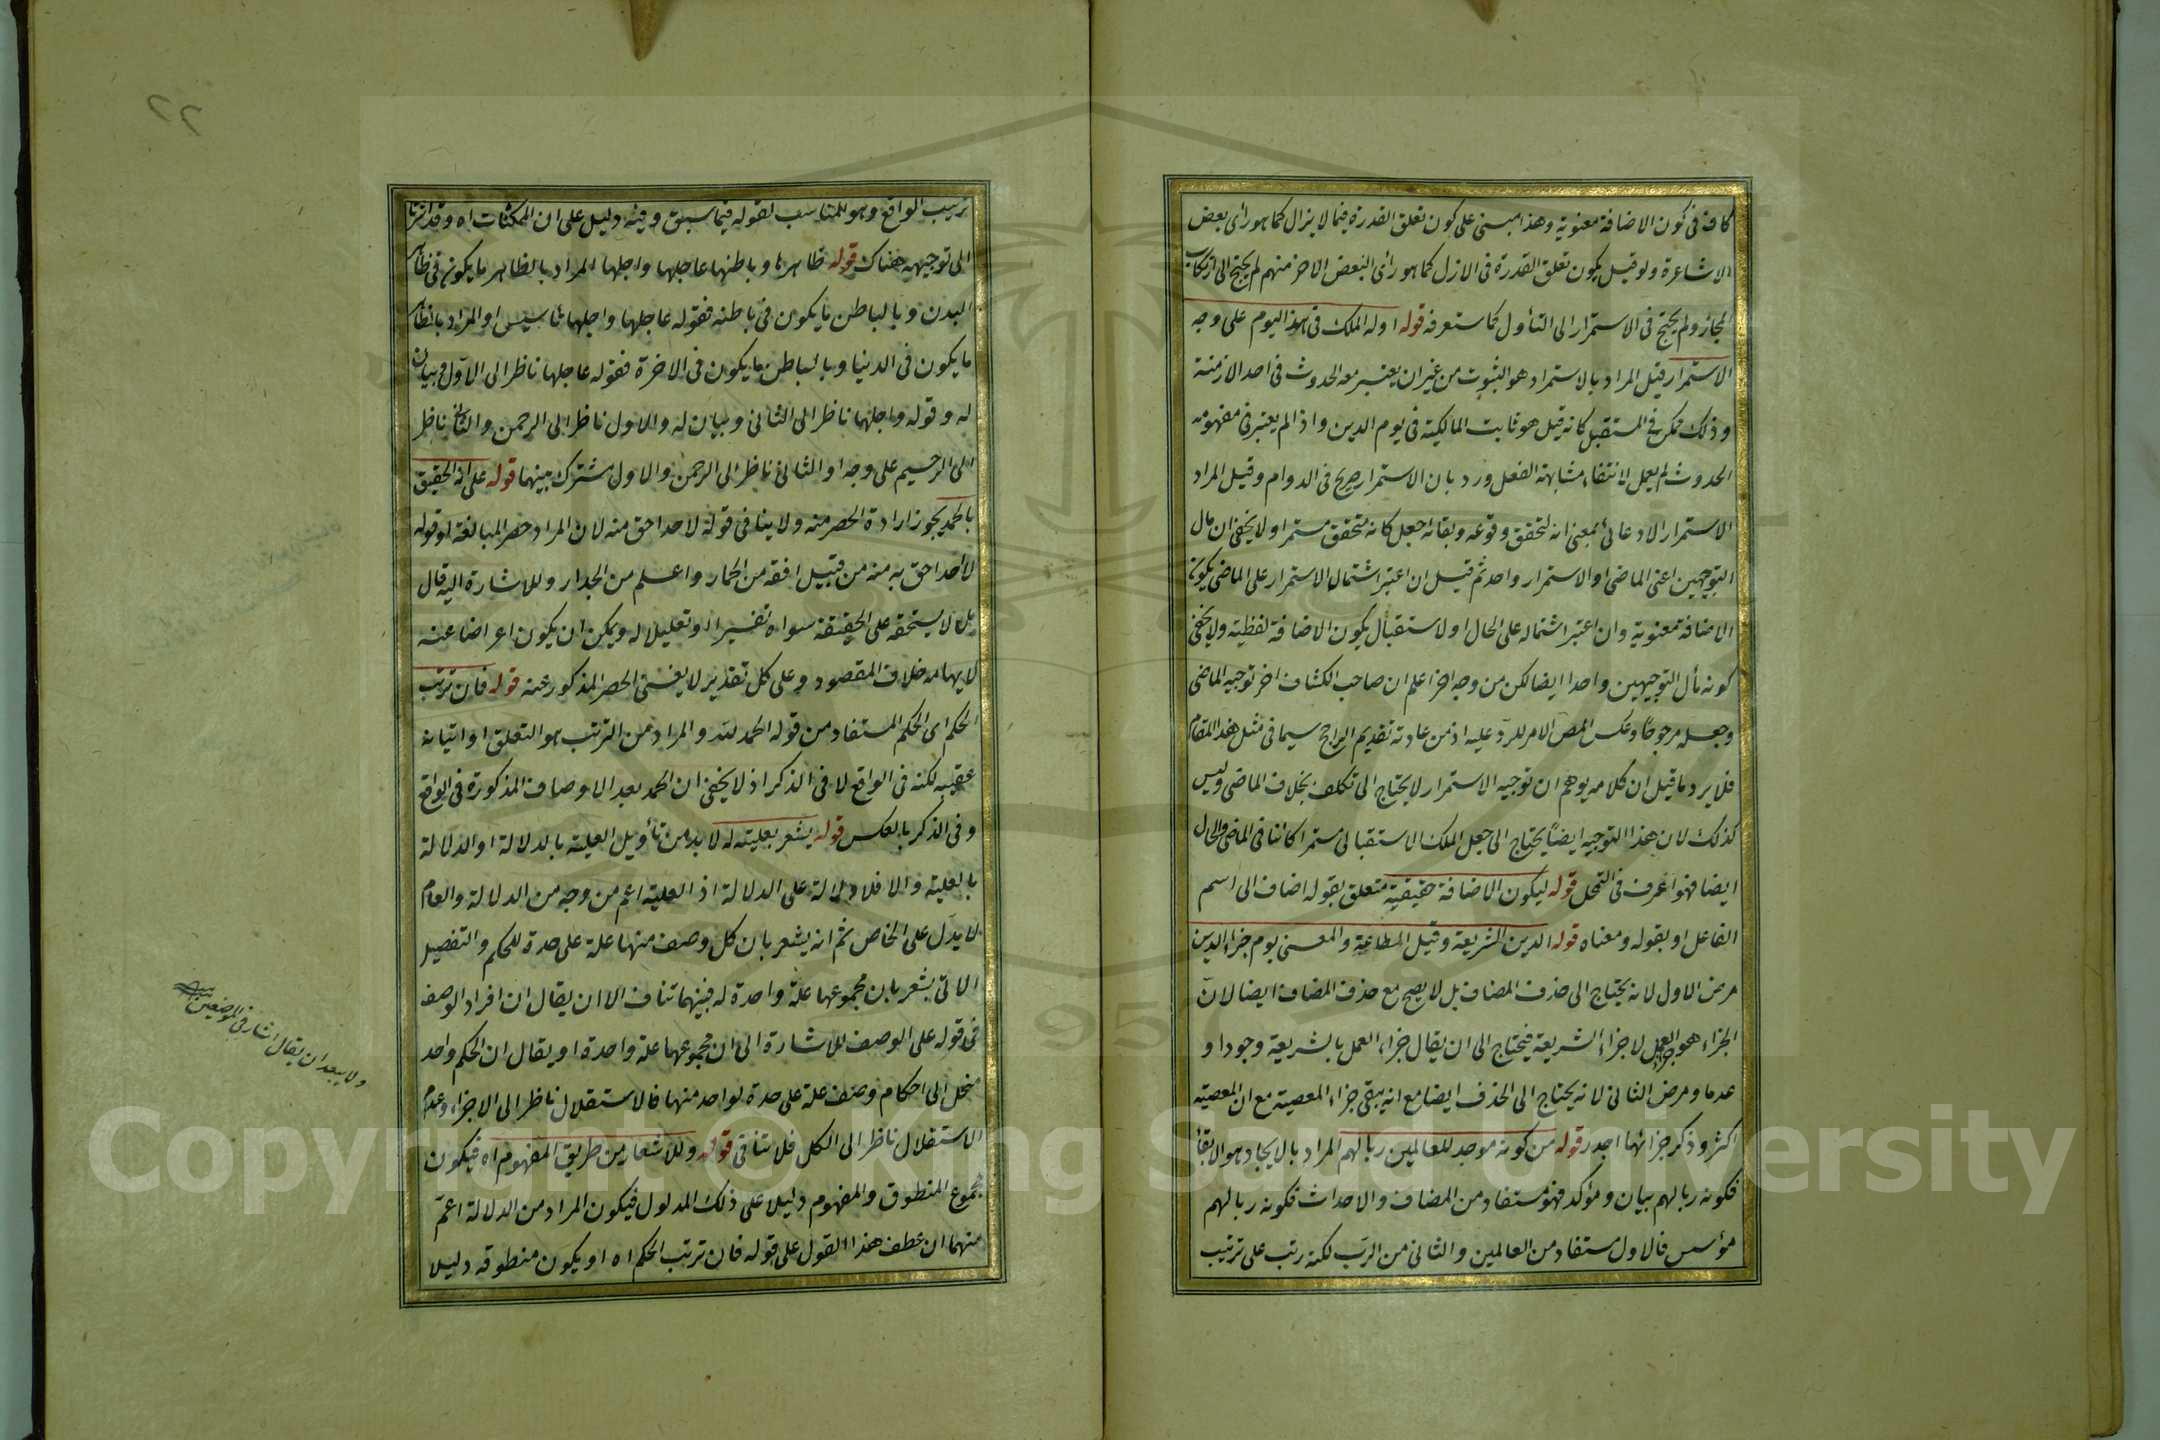 كافة في كون الاضافة معنوية وهذا مبني على كون تعلق القدرة فيما لا يزال كما هو رأى بعض
الاشاعرة ولو قيل بكون تعلق القدرة في الازل كما هو رأى البعض الاخر منهم لم يحتج الى ارتكاب
المجاز ولم يحتج في الاستمرار الى التأول كما ستعرفه قوله او له الملك في هذا اليوم على وجه
الاستمرار قيل المراد بالاستمرار هو الثبوت من غير ان يعتبر معه الحدوث في احد الازمنة
وذلك ممكن في المستقبل كانه قيل هو ثابت المالكية في يوم الدين واذا لم يعتبر في مفهومه
الحدوث لم يعمل لانتفاء مشابهة الفعل ورد بان الاستمرار صريح في الدوام وقيل المراد
الاستمرار الادعائى بمعنى انه لتحقق وقوعه وبقائه اجعل كانه متحقق مستمر ولا يخفى ان مال
التوجيهين اعنى الماضى او الاستمرار واحد ثم قيل ان اعتبر اشتمال الاستمرار على الماضى يكون
الاضافة معنوية وان اعتبر اشتماله على الحال او الاستقبال يكون الاضافة لفظية ولا يخفى
كونه مأل التوجيهين واحدا ايضا لكن من وجه اخر اعلم ان صاحب الكشاف اخر توجيه الماضى
وجعله مرجوحا وعكس المص الامر للرد عليه اذ من عادته تقديم الراجح سيما في مثل هذا المقام
فلا يرد ما قيل ان كلامه يوهم ان توجيه الاستمرار لا يحتاج الى تكلف بخلاف الماضى وليس
كذلك لان هذا التوجيه ايضا يحتاج الى جعل الملك الاستقبالى مستمرا كائنا في الماضى والحال
ايضا فهو اعرف في التمحل قوله ليكون الاضافة حقيقية متعلق بقوله اضاف الى اسم
الفاعل او بقوله ومعناه قوله الدين الشريعة وقيل الطاعة والمعنى يوم جزاء الدين
مرض الاول لانه يحتاج الى حذف المضاف بل لا يصح مع حذف المضاف ايضا لان
الجزاء هو جزاء العمل لا جزاء الشريعة فيحتاج الى ان يقال جزاء العمل بالشريعة وجودا و
عدما ومرض الثانى لانه يحتاج الى الحذف ايضا مع انه يبقى جزاء المعصية مع ان المعصية
اكثر وذكر جزائها اجدر قوله من كونه موجد للعالمين ربا لهم المراد بالايجاد هو الابقاء
فكونه ربا لهم بيان ومؤكد فهو مستفاد من المضاف والاحداث فكونه ربا لهم
مؤسس فالاول مستفاد من العالمين والثانى من الرب لكنه رتب على ترتيب
ترتيب الواقع وهو المناسب لقوله فيما سبق وفيه دليل على ان الممكنات اه وقد اشرنا
الى توجيهه هناك قوله ظاهرها وباطنها عاجلها واجلها المراد بالظاهر ما يكون في ظاهر
البدن وبالباطن ما يكون في باطنه فقوله عاجلها واجلها تأسيس او المراد بالظاهر
ما يكون في الدنيا وبالباطن ما يكون في الاخرة فقوله عاجلها ناظر الى الاول وبيان
له وقوله واجلها ناظر الى الثانى وبيان له والاول ناظر الى الرحمن والثانى ناظر
الى الرحيم على وجه او الثانى ناظر الى الرحمن والاول مشترك بينهما قوله على انه الحقيق
بالحمد يجوز ارادة الحصر منه ولا ينافى قوله لا احد احق منه لان المراد حصر المبالغة او قوله
لا احد احق به منه من قبيل افقه من الحمار واعلم من الجدار وللاشارة اليه قال
بل لا يستحقه على الحقيقة سواه تفسيرا او تعليلا له ويمكن ان يكون اعراضا عنه
لايهامه خلاف المقصود وعلى كل تقدير لا يغنى الحصر المذكور عنه قوله فان ترتب
الحكم اى الحكم المستفاد من قوله الحمد لله والمراد من الترتب هو التعلق او اتيانه
عقيبه لكنه في الواقع لا في الذكر اذ لا يخفى ان الحمد بعد الاوصاف المذكورة في الواقع
وفي الذكر بالعكس قوله يشعر بعليته له لا بد من تأويل العلية بالدلالة او الدلالة
بالعلية والا فلا دلالة على الدلالة اذ العلية اعم من وجه من الدلالة والعام
لا يدل على الخاص ثم انه يشعر بان كل وصف منها علة على حدة للحكم والتفصيل
الاتى يشعر بان مجموعها علة واحدة له فبينهما تناف الا ان يقال ان افراد الوصف
في قوله على الوصف للاشارة الى ان مجموعها علة واحدة او يقال ان الحكم واحد
منحل الى احكام وصف علة على حدة لواحد منها فالاستقلال ناظر الى الاجزاء وعدم
الاستقلال ناظر الى الكل فلا تنافى قوله وللاشعار من طريق المفهوم اه فيكون
مجموع المنطوق والمفهوم دليلا على ذلك المدلول فيكون المراد من الدلالة اعم
منهما ان عطف هذا القول على قوله فان ترتب الحكم اه او يكون منطوقه دليلا
ولا يبعد ان يقال اشار في الموضعين
٢٢
Copyright © King Saud University